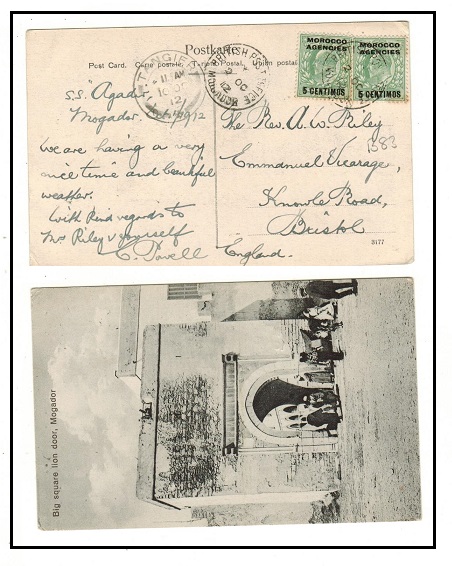 Postkarte
Post Card. Carte postale.
S.S. "Agadir"
Mogador. Oct. 1912
We are having a very
nice time and beautiful
weather.
With kind regards to
Mrs Riley & yourself
C. Powell
TANGIER
12
BRITISH POST OFFICE
MOGADOR
OC
12
MOROCCO
AGENCIES
5 CENTIMOS
MOROCCO
AGENCIES
5 CENTIMOS
The Rev. A. W. Riley
1383
Emmanuel Vicarage,
Knowle Road,
Bristol
England.
3177
Big square lion door, Mogador